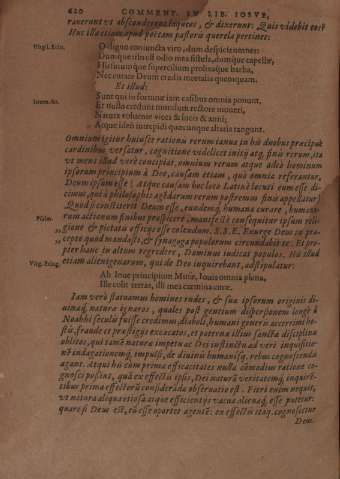 620 COMMENT. IN LIB. IOSVE,
rauerunt vt absconderent iniquos, & dixerunt: Quis videbit eos?
Huc illa etiam apud poëtam pastoris querela pertinet:
Virgil. Eclo.
O digno coniuncta viro, dum despicis omnes:
Dumque tibi est odio mea fistula, dumque capellæ,
Hirsutumque supercilium prolixaque barba,
Nec curare Deum credis mortalia quenquam.
Et illud:
Iuuen. Sat.
Sunt qui in fortunæ iam casibus omnia ponunt,
Et nullo credunt mundum rectore moueri,
Natura voluente vices & lucis & anni;
Atque ideo intrepidi quæcunque altaria tangunt.
Omnium igitur huiusce rationu rerum tanus in his duobus præcipuè
cardinibus versatur, cognitione videlicet initij atq. finis rerum, ita
vt mens illud verè concipiat, omnium rerum atque adeò hominum
ipsorum principium à Deo, causam etiam, quò omnia referantur,
Deum ipsum esse
Quod si constiterit Deum esse, eundemq. humana curare, humana-
rum actionum finibus prospicere, manifestè consequitur ipsum reli-
Psalm.
gione & pietate officijs esse colendum. S.S.E. Exurge Deus in præ-
cepto quod mandasti, & synagoga populorum circundabit te. Et pro-
pter hanc in altum regredere, Dominus iudicat populos. Hoc illud
Virg. Eclog.
etiam alienigenarum, qui de Deo inquirebant, astipulatur:
Ab Ioue principium Musæ, Iouis omnia plena,
Ille colit terras, illi mea carmina curæ.
Iam verò statuamus homines rudes, & suæ ipsorum originis di-
uinaq. natura ignaros, quales post gentium dispersionem longè à
Noahhi seculo fuisse credimus
stis, fraude et præstigijs excæcatos, et paterna illius sanctæ disciplina
oblitos, qui tamen naturæ impetu ac Dei instinctu ad veri inquisitio-
nē indagationemq. impulsi, de diuinis humanisq. rebus cognoscenda
agunt. Atqui his cùm prima efficacitates nulla cōmodius ratione co-
gnosci possint, quā ex effectis ipsis, Dei naturā veritatemq. inquirē-
tibus prima effectorū consideranda obseruatio est. Fieri enim nequit,
vt natura aliqua otiosa atque efficientijs vacua alienaq. esse putetur:
quare si Deus est, eū esse oportet agentē: ex effectis itaq. cognoscetur
Deus